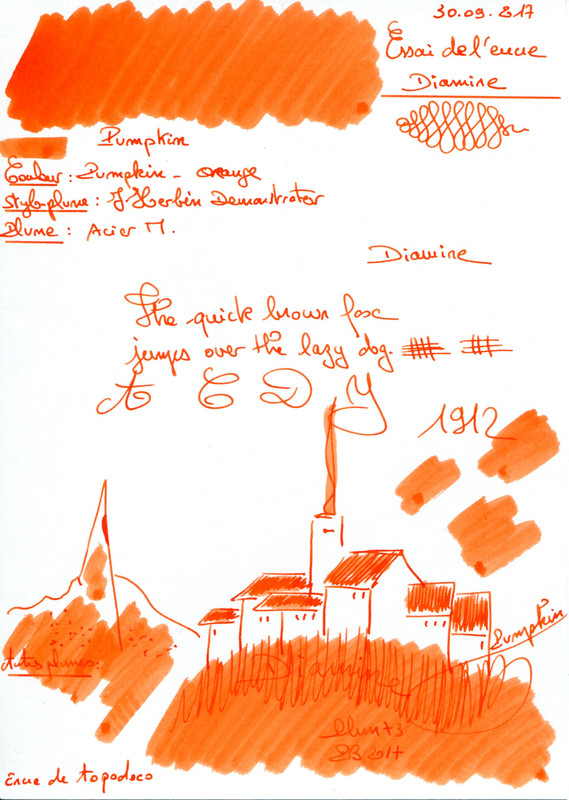 30.09.817
Essai de l'encre
Diamine
Pumpkin
Couleur : Pumpkin - orange
Stylo-plume : J Herbin Demonstrator
Plume : Acier M.
Diamine
The quick brown fox
jumps over the lazy dog.
A C D Y
1912
Pumpkin
Diamine
Autres plumes :
2017
Encre de topodoco